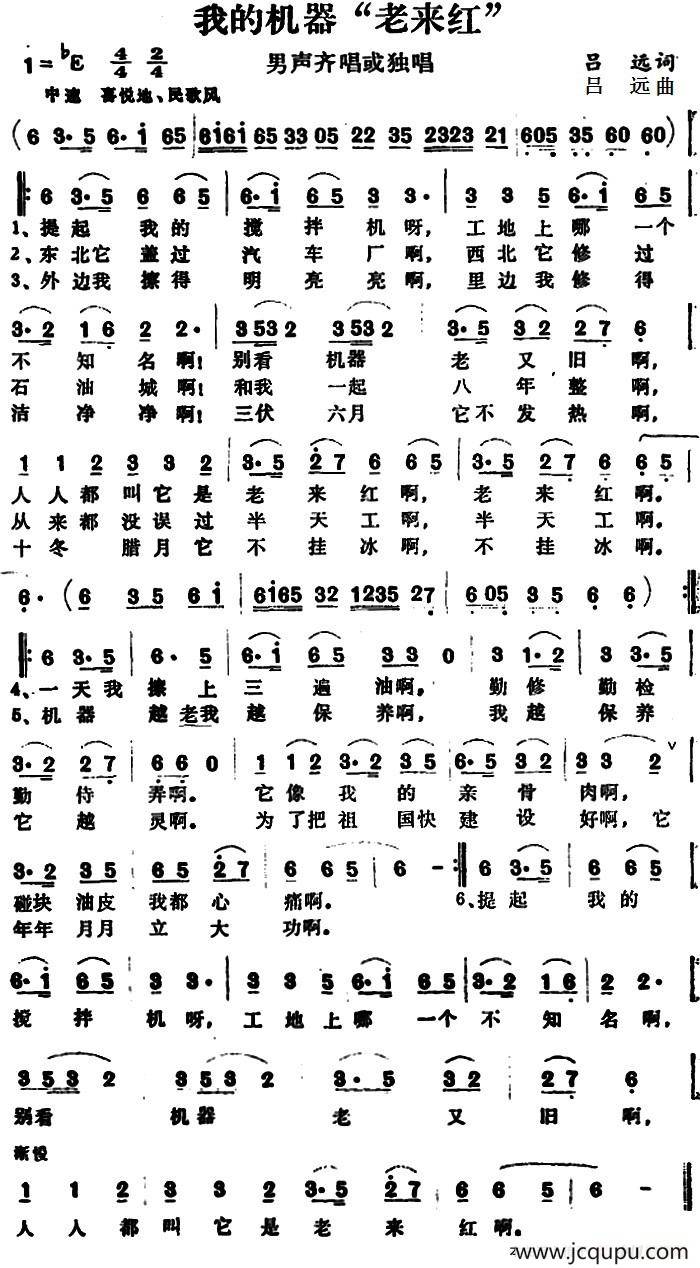 我的机器“老来红”
1=♭E 4/4 2/4 男声齐唱或独唱 吕远词
吕远曲
中速 喜悦地、民歌风
(6 3·5 6·i 65 6i6i 65 33 05 22 35 2323 21 605 35 60 60)
6 3·5 6 65 6·i 65 3 3· 3 3 5 6·i 65
1、提起我的搅拌机呀,工地上哪一个
2、东北它盖过汽车厂啊,西北它修过
3、外边我擦得明亮亮啊,里边我修得
3·2 16 2 2· 3 53 2 3 53 2 3·5 32 27 6
不知名啊!别看机器老又旧啊,
石油城啊!和我一起八年整啊,
洁净净啊!三伏六月它不发热啊,
1 1 2 3 3 2 3·5 27 6 65 3·5 27 6 65
人人都叫它是老来红啊,老来红啊。
从来都没误过半天工啊,半天工啊。
十冬腊月它不挂冰啊,不挂冰啊。
6· (6 35 6i 6i65 32 1235 27 6 05 35 6 6)
6 3·5 6·5 6·i 65 33 0 3 1·2 3 3·5
4、一天我擦上三遍油啊。勤修勤检
5、机器越老我越保养啊,我越保养
3·2 27 66 0 1 12 3·2 35 6·5 32 33 2
勤侍弄啊。它像我的亲骨肉啊,
它越灵啊。为了把祖国快建设好啊,它
3·2 35 65 27 6 65 6 - 6 3·5 6 65
碰块油皮我都心痛啊。6、提起我的
年年月月立大功啊。
6·i 65 3 3· 3 3 5 6·i 65 3·2 16 2 2·
搅拌机呀,工地上哪一个不知名啊,
3 53 2 3 53 2 3·5 32 27 6
别看机器老又旧啊,
渐慢
1 1 2 3 3 2 3·5 27 6 65 6 -
人人都叫它是老来红啊。
www.jcqupu.com